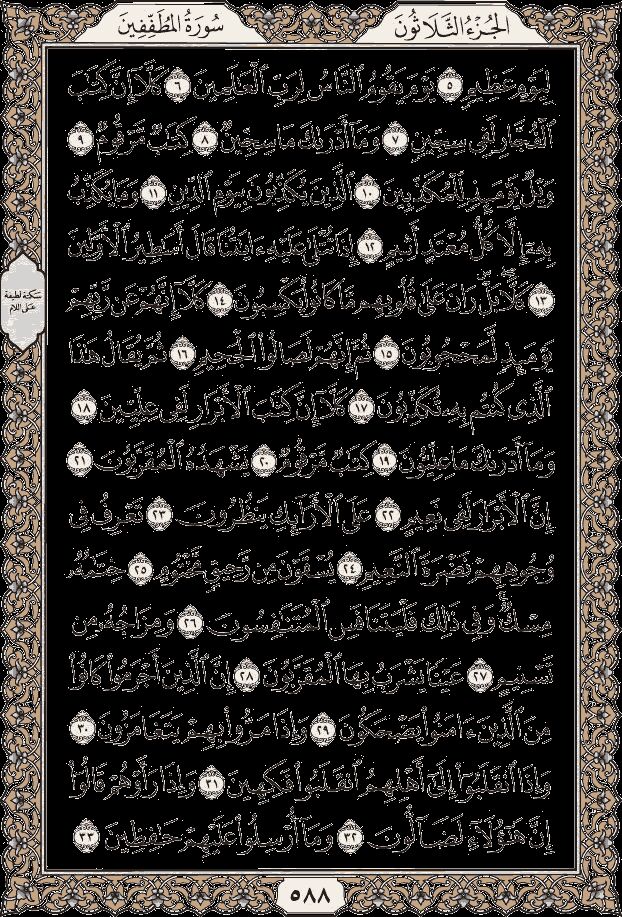 الجُزْءُ الثَّلَاثُونَ
سُورَةُ المُطَفِّفِين
لِيَوْمٍ عَظِيمٍ ٥ يَوْمَ يَقُومُ ٱلنَّاسُ لِرَبِّ ٱلْعَٰلَمِينَ ٦ كَلَّآ إِنَّ كِتَٰبَ
ٱلْفُجَّارِ لَفِى سِجِّينٍ ٧ وَمَآ أَدْرَىٰكَ مَا سِجِّينٌ ٨ كِتَٰبٌ مَّرْقُومٌ ٩
وَيْلٌ يَوْمَئِذٍ لِّلْمُكَذِّبِينَ ١٠ ٱلَّذِينَ يُكَذِّبُونَ بِيَوْمِ ٱلدِّينِ ١١ وَمَا يُكَذِّبُ
بِهِۦٓ إِلَّا كُلُّ مُعْتَدٍ أَثِيمٍ ١٢ إِذَا تُتْلَىٰ عَلَيْهِ ءَايَٰتُنَا قَالَ أَسَٰطِيرُ ٱلْأَوَّلِينَ
١٣ كَلَّا ۖ بَلْ ۜ رَانَ عَلَىٰ قُلُوبِهِم مَّا كَانُوا۟ يَكْسِبُونَ ١٤ كَلَّآ إِنَّهُمْ عَن رَّبِّهِمْ
يَوْمَئِذٍ لَّمَحْجُوبُونَ ١٥ ثُمَّ إِنَّهُمْ لَصَالُوا۟ ٱلْجَحِيمِ ١٦ ثُمَّ يُقَالُ هَٰذَا
ٱلَّذِى كُنتُم بِهِۦ تُكَذِّبُونَ ١٧ كَلَّآ إِنَّ كِتَٰبَ ٱلْأَبْرَارِ لَفِى عِلِّيِّينَ ١٨
وَمَآ أَدْرَىٰكَ مَا عِلِّيُّونَ ١٩ كِتَٰبٌ مَّرْقُومٌ ٢٠ يَشْهَدُهُ ٱلْمُقَرَّبُونَ ٢١
إِنَّ ٱلْأَبْرَارَ لَفِى نَعِيمٍ ٢٢ عَلَى ٱلْأَرَآئِكِ يَنظُرُونَ ٢٣ تَعْرِفُ فِى
وُجُوهِهِمْ نَضْرَةَ ٱلنَّعِيمِ ٢٤ يُسْقَوْنَ مِن رَّحِيقٍ مَّخْتُومٍ ٢٥ خِتَٰمُهُۥ
مِسْكٌ ۚ وَفِى ذَٰلِكَ فَلْيَتَنَافَسِ ٱلْمُتَنَٰفِسُونَ ٢٦ وَمِزَاجُهُۥ مِن
تَسْنِيمٍ ٢٧ عَيْنًا يَشْرَبُ بِهَا ٱلْمُقَرَّبُونَ ٢٨ إِنَّ ٱلَّذِينَ أَجْرَمُوا۟ كَانُوا۟
مِنَ ٱلَّذِينَ ءَامَنُوا۟ يَضْحَكُونَ ٢٩ وَإِذَا مَرُّوا۟ بِهِمْ يَتَغَامَزُونَ ٣٠
وَإِذَا ٱنقَلَبُوٓا۟ إِلَىٰٓ أَهْلِهِمُ ٱنقَلَبُوا۟ فَكِهِينَ ٣١ وَإِذَا رَأَوْهُمْ قَالُوٓا۟
إِنَّ هَٰٓؤُلَآءِ لَضَآلُّونَ ٣٢ وَمَآ أُرْسِلُوا۟ عَلَيْهِمْ حَٰفِظِينَ ٣٣
سكتة لطيفة
على اللام
٥٨٨